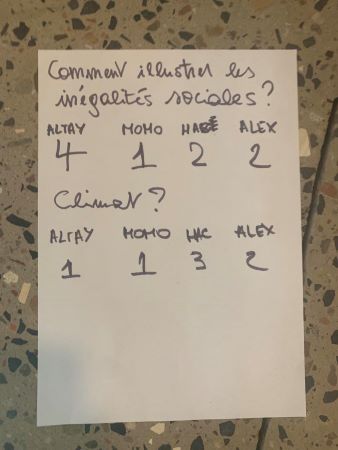 Comment illustrer les
inégalités sociales ?
ALTAY MOMO ALEX
4 1 2 2
Climat ?
ALTAY MOMO HAC ALEX
1 1 3 2